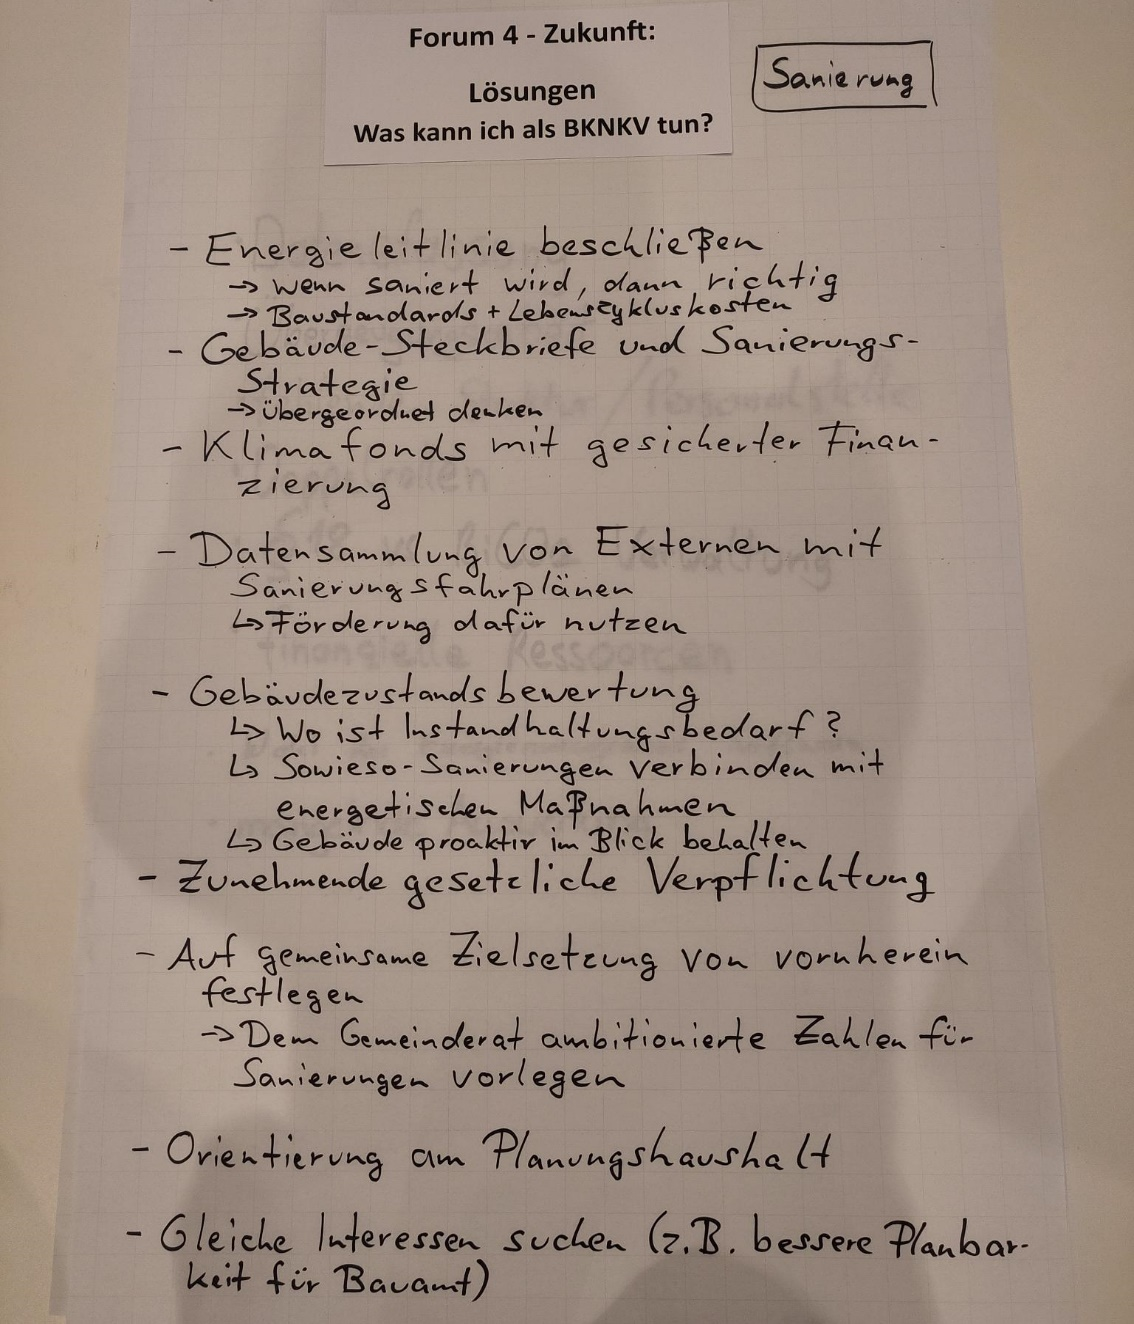 Forum 4 - Zukunft:
Lösungen
Was kann ich als BKNKV tun?
Sanierung
- Energieleitlinie beschließen
→ wenn saniert wird, dann richtig
→ Baustandards + Lebenszykluskosten
- Gebäude-Steckbriefe und Sanierungs-
Strategie
→ Übergeordnet denken
- Klimafonds mit gesicherter Finan-
zierung
- Datensammlung von Externen mit
Sanierungsfahrplänen
↳ Förderung dafür nutzen
- Gebäudezustandsbewertung
↳ Wo ist Instandhaltungsbedarf?
↳ Sowieso-Sanierungen verbinden mit
energetischen Maßnahmen
↳ Gebäude proaktiv im Blick behalten
- Zunehmende gesetzliche Verpflichtung
- Auf gemeinsame Zielsetzung von vornherein
festlegen
→ Dem Gemeinderat ambitionierte Zahlen für
Sanierungen vorlegen
- Orientierung am Planungshaushalt
- Gleiche Interessen suchen (z.B. bessere Planbar-
keit für Bauamt)